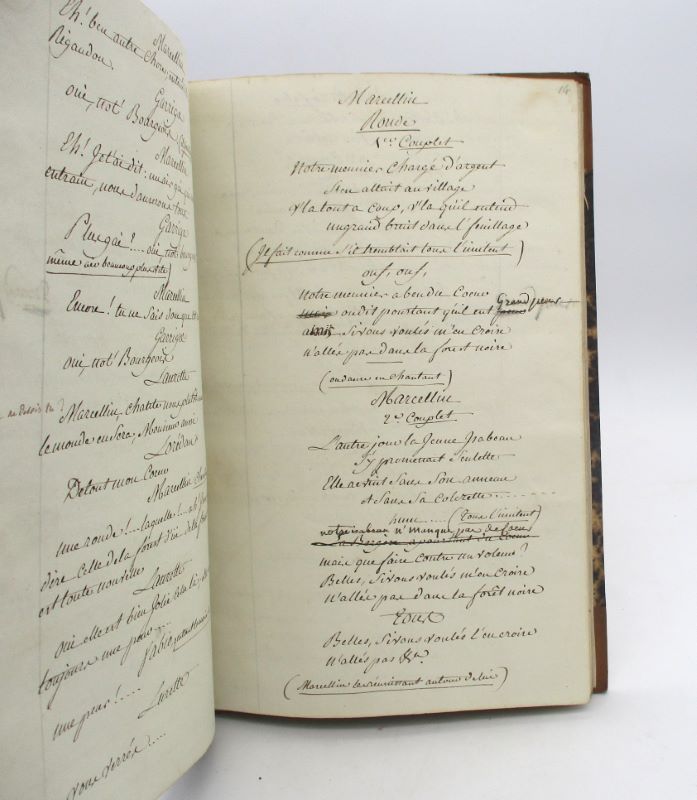 Eh! ben autre chose
Marcellin
Rigaudon.
Garrigo
oui, not' Bourgeois
Marcellin
Eh! Je t'ai dit: un air
entrain, nous danserons tous
Garrigo
Plus gai?.... oui, not'
même air beaucoup plus vite)
Marcellin
Encore! tu ne sais donc que
Garrigo
oui, not' Bourgeois
Laurette
Marcellin, chante nous plutôt
le monde en sera, Monsieur aussi
Lorédan
De tout mon Coeur
Marcellin
une ronde!... laquelle!...
dire celle de la forest
est toute nouvelle
Laurette
oui elle est bien jolie celle la;
toujours une peur....
Fabio
une peur!....
Laurette
vous verrés....
14
Marcellin
Ronde
1er Couplet
Notre meunier chargé d'argent
S'en allait au village
V'la tout a coup, v'la qu'il entend
un grand bruit dans l'feuillage
(Il fait comme s'il tremblait tous l'imitent)
ouf, ouf,
Notre meunier a ben du Coeur
mais on dit pourtant qu'il eut Grand peur
Si vous voulés m'en croire
N'allés pas dans la forest noire
(on danse en chantant)
Marcellin
2e Couplet
L'autre jour la Jeune Isabeau
S'y promettait Seulette
Elle revint Sans Son anneau
et Sans Sa Colerette.......
hum.... (Tous l'imitent)
notre isabeau n'manque pas de Coeur
La Bergère a pourtant du Coeur
mais que faire contre un voleur?
Belles, Si vous voulés m'en croire
N'allés pas dans la forêt noire
Tous
Belles, Si vous voulés l'en croire
N'allés pas &a.
(Marcellin les réunissant autour de lui)